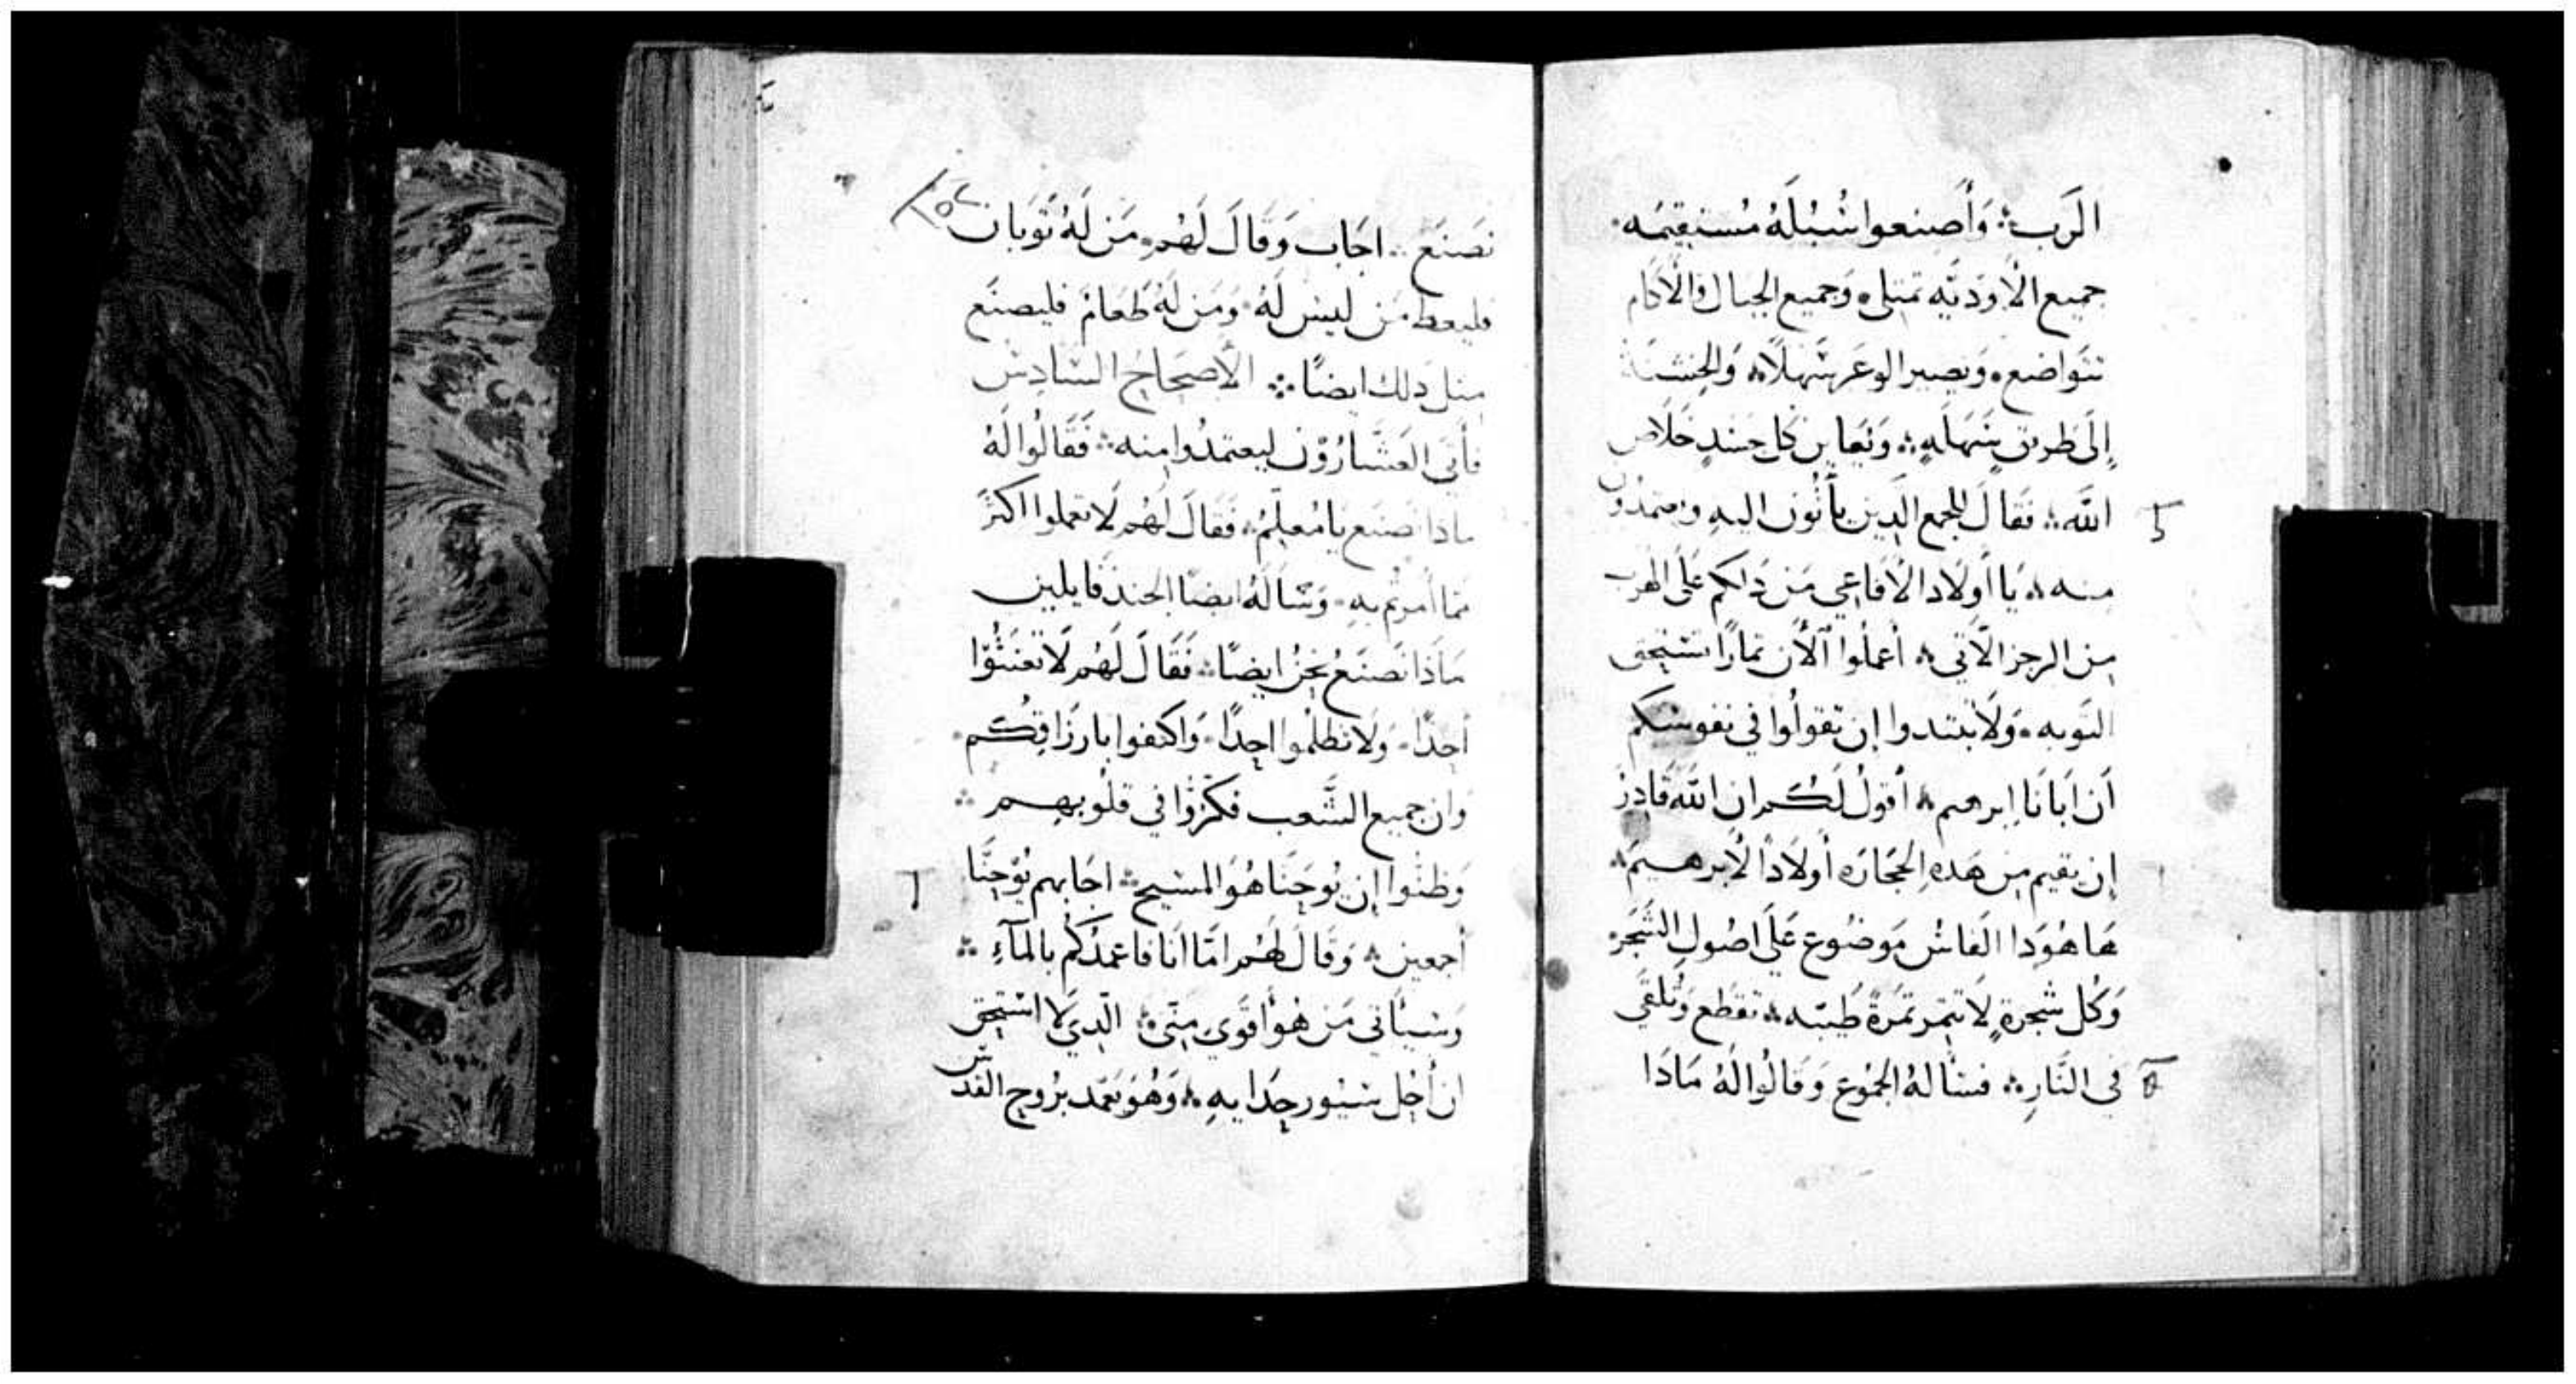 الرَب؞ وَأَصنعوا سُبُلَهُ مُستقيمَه
جميع الأَوديَه تمتلى وَجميع الجبال وَالأكام
تتواضع وَيصير الوعَر سَهلاً وَالخشنَة
إلَى طريق سَهلَهٍ؞ وَيُعاين كل جسَدٍ خَلاص
اللّه؞ فقالَ للجمع الدِين يأتُون اليهِ ويعتمدُون
منه؞ يَا أَولَاد الأَفاعي مَن دَلكم عَلَى الهَرب
مِن الرجز الآتي؞ أعملوا الأن تمارًا تستحق
التَوبه وَلَا تبتدوا إن تقولُوا في نفوسكم
أَن ابَانَا ابرهيم؞ أقولُ لَكُم ان اللّه قَادِرٌ
إن يقيم مِن هَدهِ الحجَارَه أولَادًا لأبرهيمَ؞
هَاهُوَدا الفاسُ مَوضُوع عَلَى اصُول الشَجَرَة
وَكُل شجرةٍ لَا تتمر تمَرةً طَيبَه؞ تقطع وَتُلقَى
في النَارِ؞ فسَالهُ الجموُع وَقالُوا لَهُ مَادَا
١٥٢
نَصنَع؞ اجَاب وَقالَ لَهُم مَن لَهُ تَوبَان
فليعط مَن ليسَ لَهُ وَمَن لَهُ طَعَامٌ فليصنَع
مثل دلك ايضًا؞ الأصحَاحُ السَادِس
فأتَى العَشَارُوْن ليعتمدُوا منه؞ فَقَالُوا لَهُ
مادا نصنع يا مُعلِمُ؞ فَقالَ لَهُم لَا تعملوا اكتَرَ
مَما أُمرتُم بهِ وَسَالَهُ ايضًا الجند قايلين
مَاذَا نَصنَعُ نحَنُ ايضًا؞ فَقَالَ لَهُم لَا تعنتُوْا
أحدًا وَلَا تظلمُوا احدًا وَاكتفوا بارزَاقِكُم
وان جميع الشَّعب فكرُوْا في قلُوبهِم؞
وَظنُوا إن يُوحَنَا هُوَ المسيح؞ اجَابهم يُوْحَنَّا
أجمعين؞ وَقَالَ لَهُم امَّا انَا فَاعمدُكم بالمآءِ؞
وَسيأتي مَن هُو أقوَى مِنّي؞ الّدِي لَا استحِق
ان أَحُل سيُور حِدَايهِ؞ وَهُوَ يعَمّد برُوح القدس